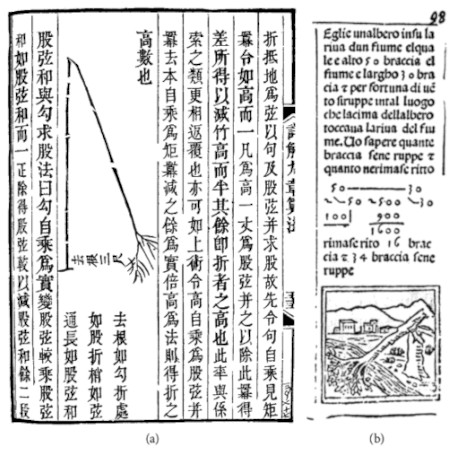 折抵地為弦以句及股弦并求股故先令句自乘見矩
羃令如高而一凡為高一丈為股弦并之以除此羃得
差所得以減竹高而半其餘即折者之高也此率與係
索之類更相返覆也亦可如上術令高自乘為股弦并
羃去本自乘為矩羃減之餘為實倍高為法則得折之
高數也
去根三尺
去根如勾折處
如股折梢如弦
通長如股弦和
股弦和與勾求股法曰勾自乘為實變股弦較乘股弦
和如股弦和而一正除得股弦較以減股弦和餘二段
詳解九章算法
(a)
98
Eglie unalbero insu la
riua dun fiume elqua
le e alto 50 braccia el
fiume e largho 30 bra
cia ⁊ per fortuna di uē
to siruppe intal luogo
che lacima dellalbero
toccaua lariua del fiu
me. Uo sapere quante
braccia sene ruppe ⁊
quanto nerimase ritto
50 30
50 2500 30
100 900
1600
rimase rito 16 brac
cia ⁊ 34 braccia sene
ruppe
(b)